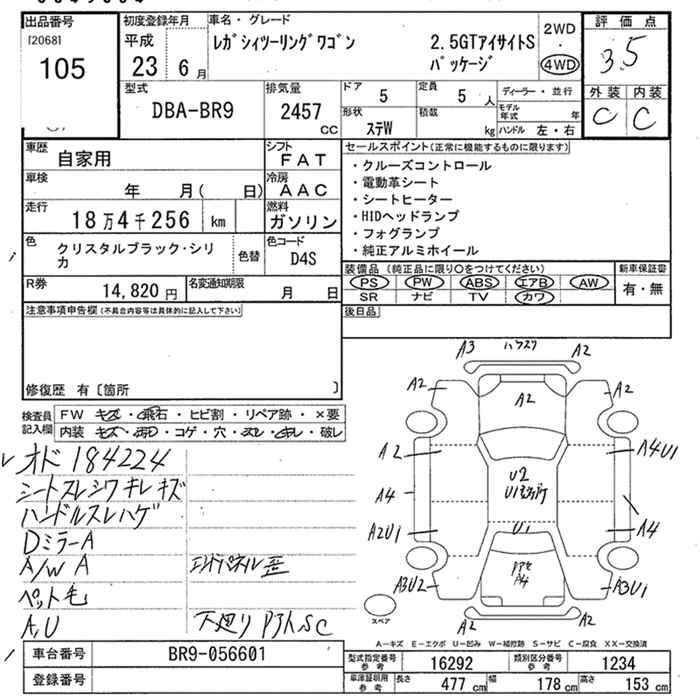 出品番号
[2068]
105
初度登録年月
平成
23 6月
車名・グレード
レガシィツーリングワゴン 2.5GTアイサイトS
パッケージ
2WD
・
4WD
評価点
3.5
外装 内装
C C
型式
DBA-BR9
排気量
2457
cc
ドア
5
定員
5 人
形状
ステW
積載
kg
ディーラー・並行
モデル年式 年
ハンドル 左・右
車歴
自家用
シフト
FAT
車検
年 月( 日)
冷房
AAC
走行
18万4千256 km
燃料
ガソリン
色
クリスタルブラック・シリ
カ
色替
色コード
D4S
R券
14,820 円
名変通知期限
月 日
セールスポイント(正常に機能するものに限ります)
・クルーズコントロール
・電動革シート
・シートヒーター
・HIDヘッドランプ
・フォグランプ
・純正アルミホイール
装備品(純正品に限り○をつけてください)
新車保証書
PS PW ABS エアB AW
有・無
SR ナビ TV カワ
後日品
注意事項申告欄(不具合内容等は具体的に記入して下さい)
修復歴 有〔箇所 〕
検査員
記入欄
FW キズ・飛石・ヒビ割・リペア跡・×要
内装 キズ・汚れ・コゲ・穴・スレ・キレ・破レ
オド 184224
シートスレシワキレキズ
ハンドルスレハゲ
DミラーA
A/W A
ペット毛
A,U
下廻り
A3 A2
A2 A2 A2
A2 A4U1
U2
A4
A2U1 U1 A4
A4
A3U2 A3U1
A2 A2
スペア
A−キズ E−エクボ U−凹み W−補修跡 S−サビ C−腐食 XX−交換済
車台番号
BR9-056601
登録番号
型式指定番号
参考
16292
類別区分番号
参考
1234
車庫証明用
参考
長さ 477 cm 幅 178 cm 高さ 153 cm